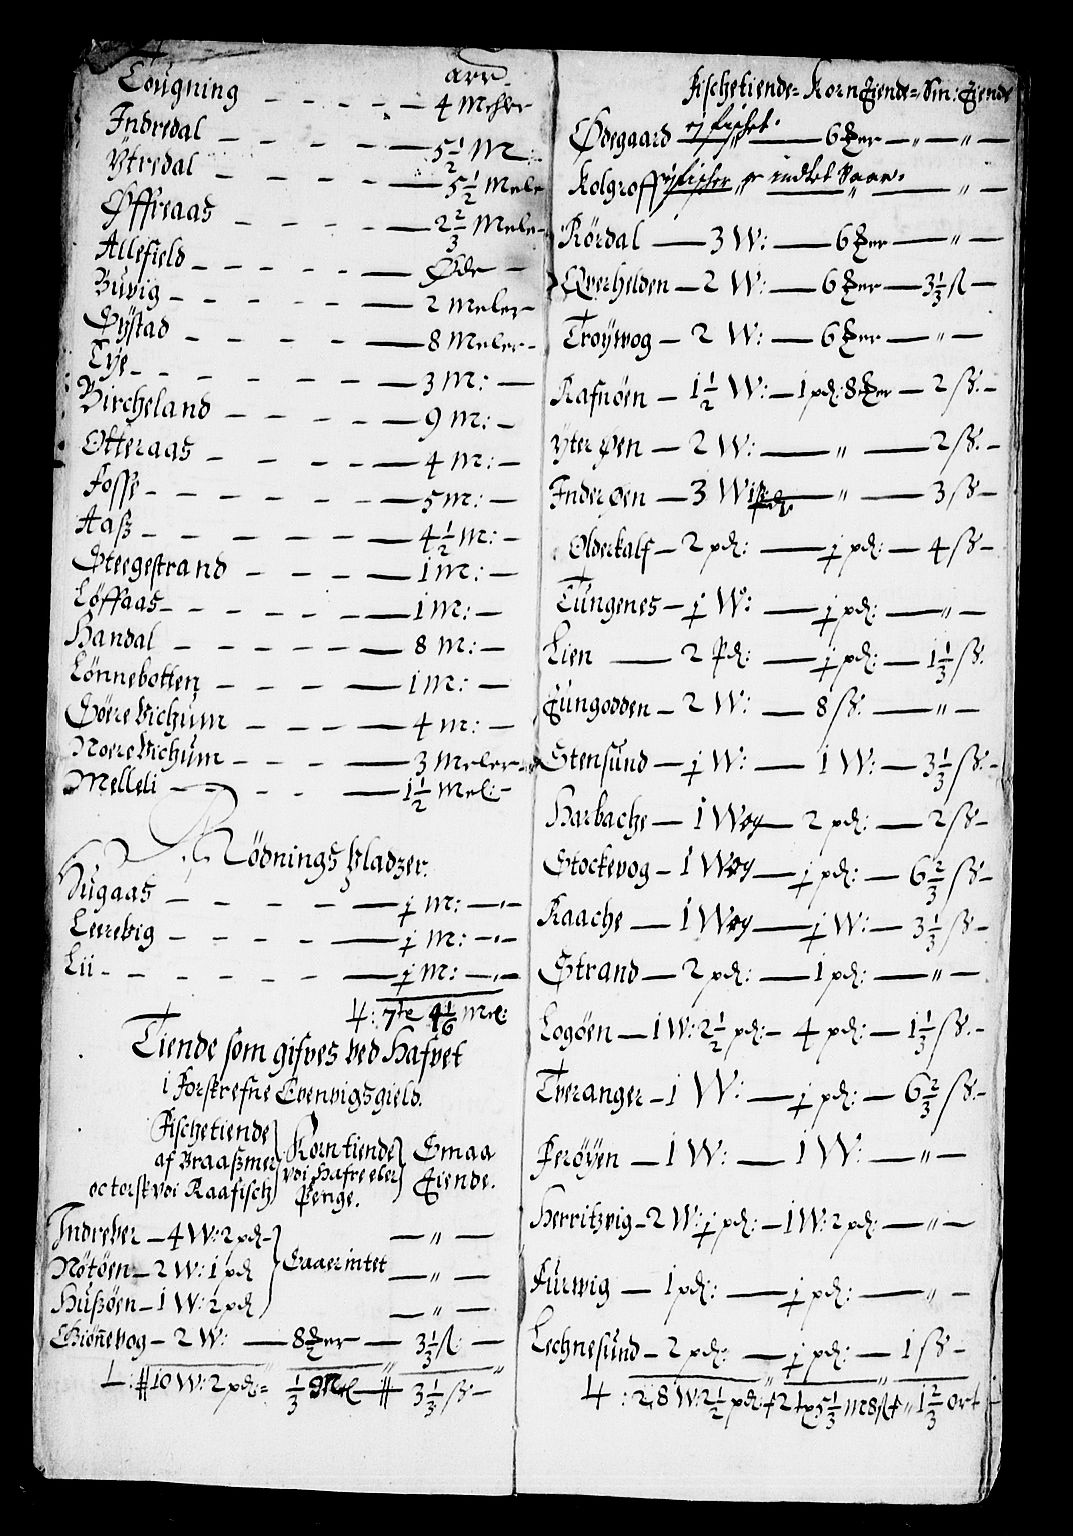 Cougning - - - - 4 Meler
Indredal - - - - 5 1/2 M:
Ytredal - - - - 5 1/2 Mele
Øffreaas - - - - 2 2/3 Mele
Allefield - - - - Øde -
Buvig - - - - 2 Meler -
Systad - - - - 8 Meler -
Tye - - - - 3 M: -
Bircheland - - - - 9 M: -
Otteraas - - - - 4 M: -
Fosse - - - - 5 M: -
Aaß - - - - 4 1/2 M: -
Steegestrand - - - 1 M: -
Løffaas - - - - 1 M: -
Handal - - - - 8 M: -
Lønnebotten - - - 1 M: -
Søere Vichum - - - 4 M: -
Noere Vichum - - - 3 Meler -
Melleli - - - - 1 1/2 Mel: -
Rødnings Pladzer.
Hugaas - - - - j M: - " -
Leerevig - - - - j M: - " -
Lii - - - - j M: - " -
7te 4 1/6 Mel:
Tiende som gifves ved Hafvet
i Forskrefne Evenvigsgield.
Fischetiende af Braaßmer oc torsk voi Raafisch
Korn tiende voi Hafre eler Penge.
Smaa Tiende.
Indrever - 4 W: 2 pd - " -
Nøtøen - 2 W: 1 pd Saaer intet - " -
Hußøen - 1 W: 2 pd - " -
Biønevog - 2 W: - 8 1/2 - 3 1/3 ß -
10 W: 2 pd: 1/3 Mel 3 1/3 ß -
Fischetiende = Korn Tiende = Sm: Tiende
Ødegaard ej fischet. - 6 - " - " -
Kolgroff ej fischer er indtet Saar. - " -
Rørdal - 3 W: - 6 - " -
Qverhelden - 2 W: - 6 - 3 1/3 ß -
Troyvog - 2 W: - 6 - " -
Rafnøen - 1 1/2 W: - 1 pd: 8 - 2 ß: -
Yter Øen - 2 W: - " - 2 ß: -
Inder Øen - 3 W - " - 3 ß -
Olderkalf - 2 pd: - j pd: - 4 ß -
Tungenes - j W: - j pd: - " -
Lien - 2 Pd: - j pd: - 1 1/3 ß:
Tungodden - 2 W: - 8 ß: - " -
Stensund - j W: - 1 W: - 3 1/3 ß: -
Harbache - 1 Wog - 2 pd: - 2 ß -
Stockevog - 1 Wog - j pd: - 6 2/3 ß -
Kaache - 1 Wog - j W: - 3 1/3 ß -
Strand - 2 pd: - 1 pd: - " -
Logøen - 1 W: 2 1/2 pd: - 4 pd: - 1 1/3 ß: -
Tveranger - 1 W: - j pd: - 6 2/3 ß -
Perøyen - 1 W: - 1 W: - " -
Herritzvig - 2 W: j pd: - 1 W: 2 pd: - " -
Furwig - 1 pd: - j pd: - " -
Lechnesund - 2 pd: - j pd: - 1 ß -
28 W: 2 1/2 pd: 5 1/3 M 8 ß 1 2/3 ort